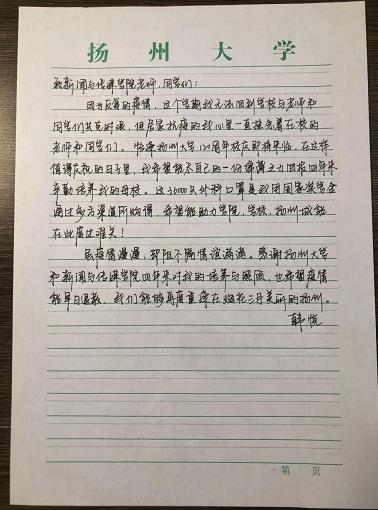 扬州大学
致新闻与传媒学院老师、同学们：
因为反复的疫情，这个学期我无法回到学校与老师和
同学们共克时艰，但居家抗疫的我心里一直挂念着在校的
老师和同学们。恰逢扬州大学120周年校庆即将来临，在这样
值得庆祝的日子里，我希望能尽自己的一份绵薄之力回报四年来
辛勤培养我的母校。这36000只外科口罩是我用国家奖学金
通过多方渠道所购得，希望能助力学院、学校、扬州城能
在此度过难关！
虽疫情漫漫，却阻不隔情谊满满。感谢扬州大学
和新闻与传媒学院四年来对我的培养与照顾，也希望疫情
能早日退散，我们能够再度重逢在烟花三月美丽的扬州。
韩悦
第 页